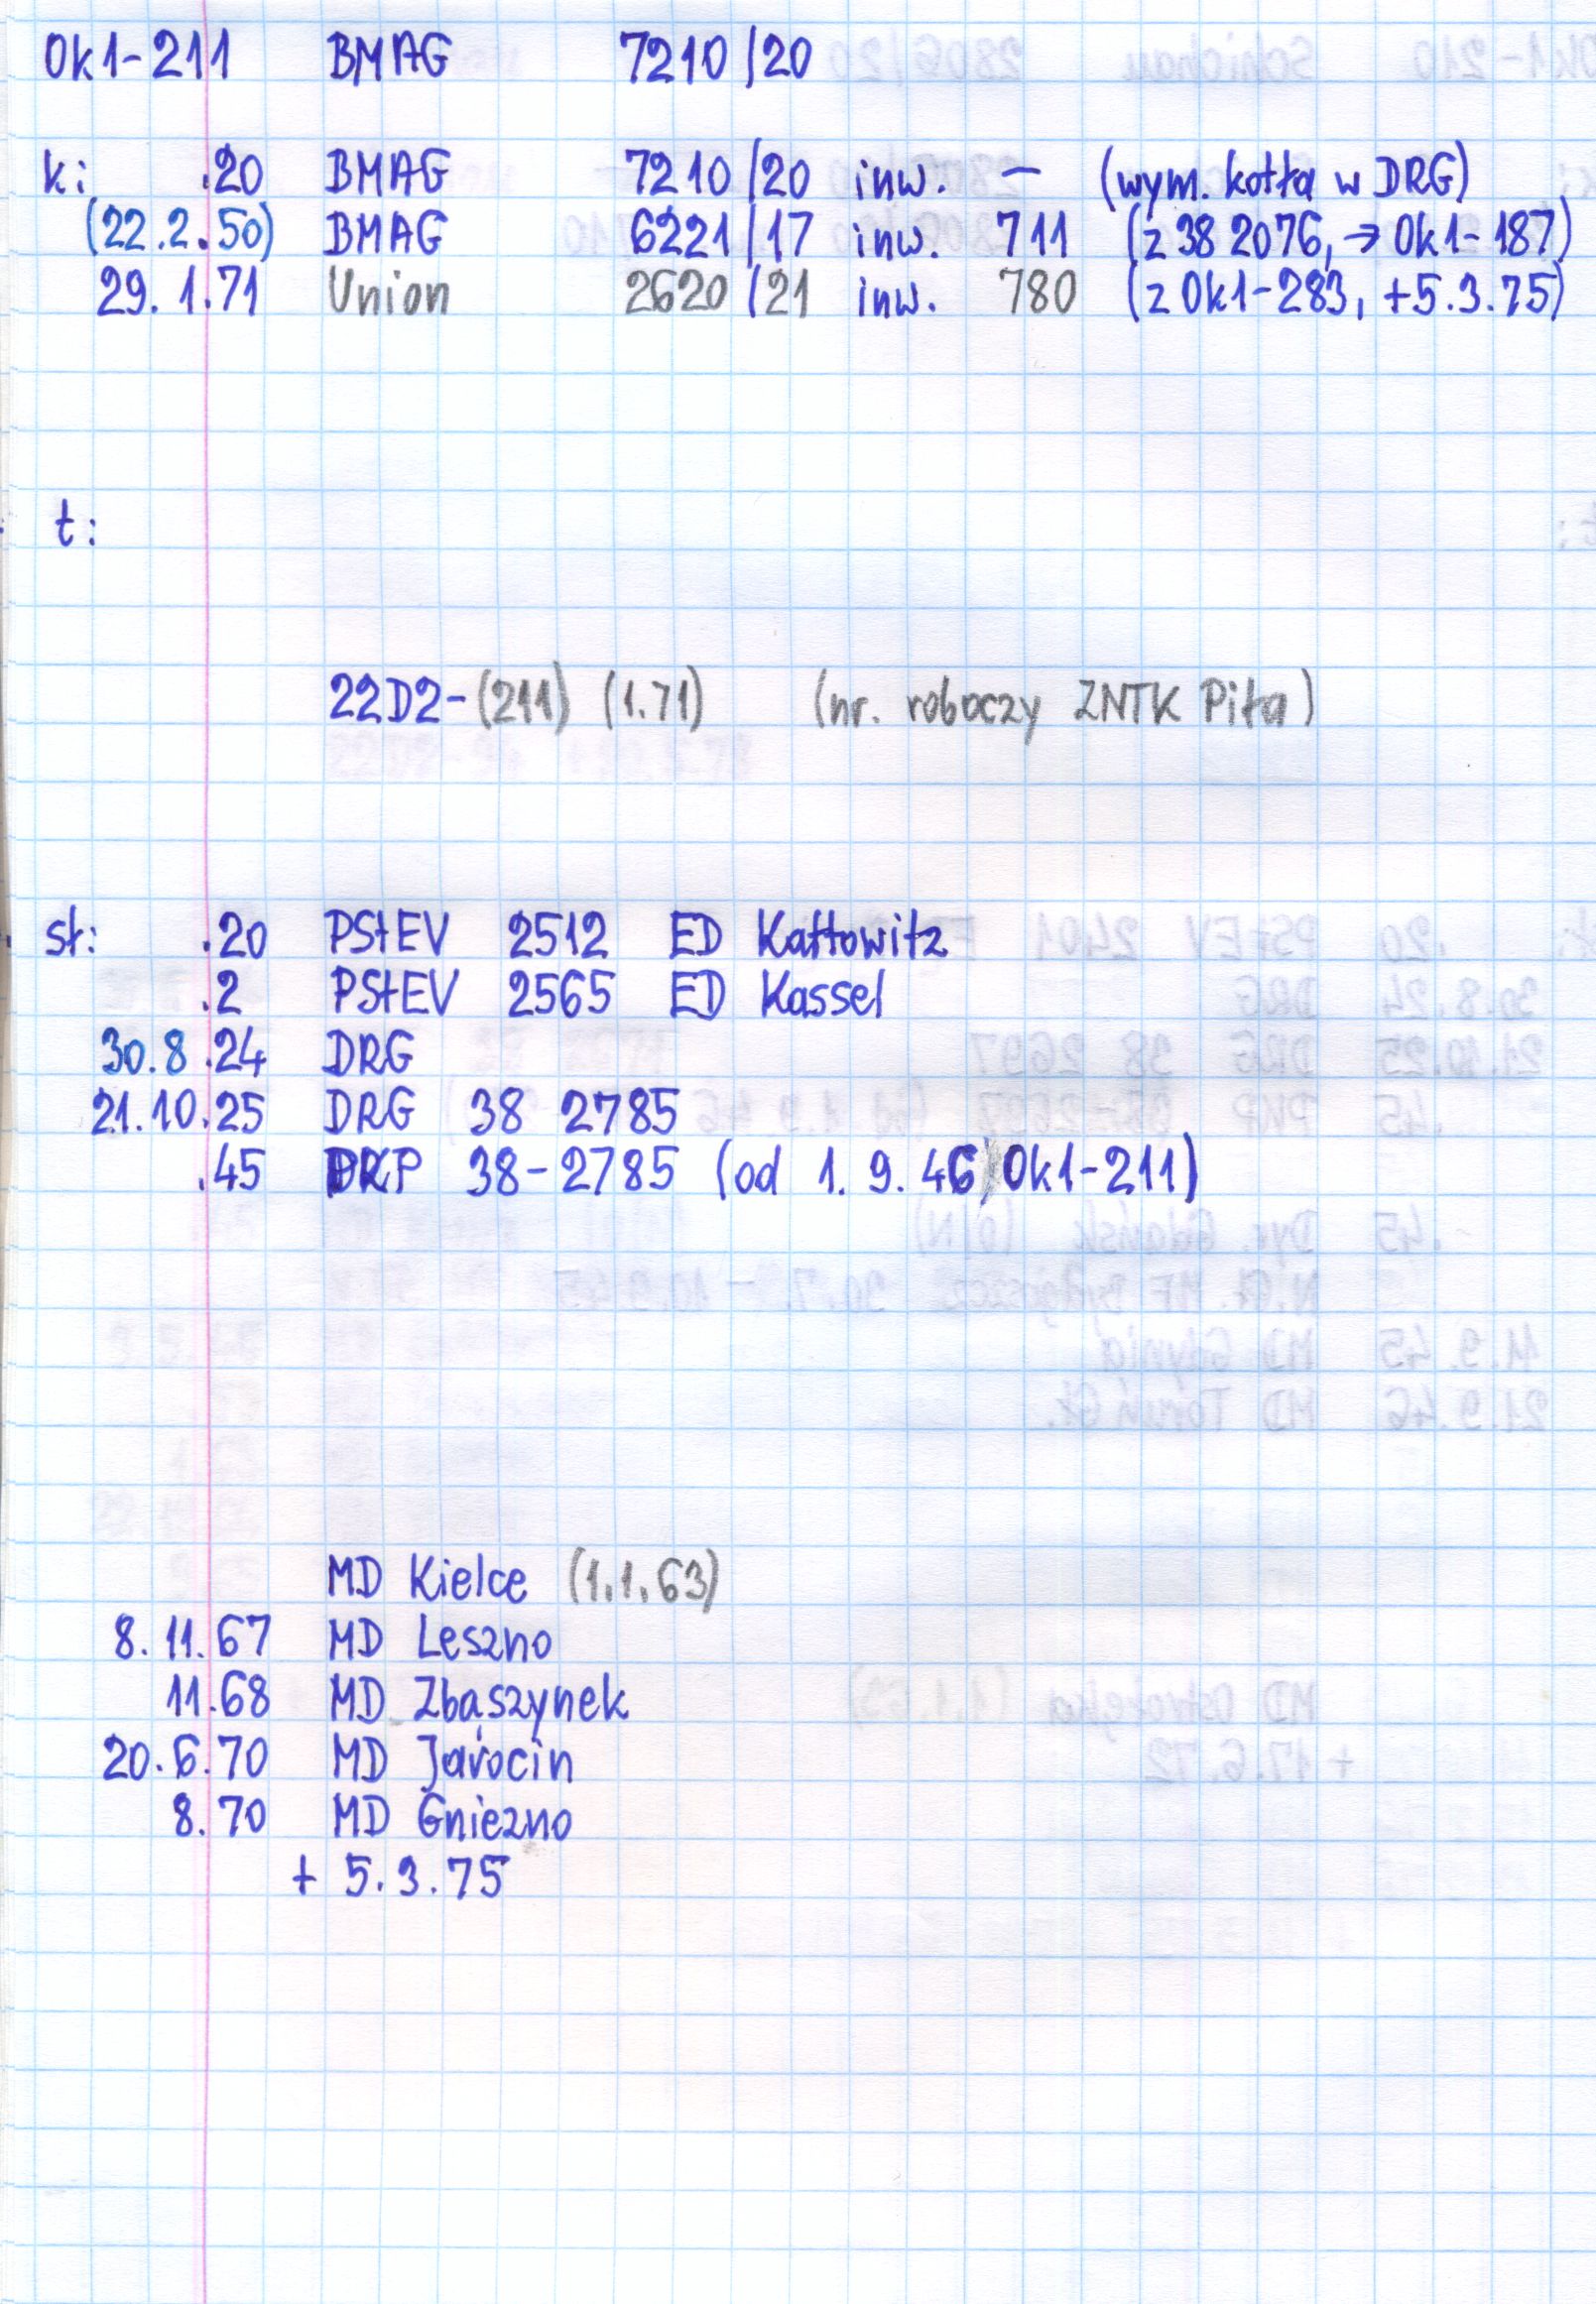 Ok1-211 BMAG 7210/20
k: .20 BMAG 7210/20 inw. — (wym. kotła w DRG)
(22.2.50) BMAG 6221/17 inw. 711 (z 38 2076, → Ok1-187)
29.1.71 Union 2620/21 inw. 780 (z Ok1-283, +5.3.75)
t:
22D2-(211) (1.71) (nr. roboczy ZNTK Piła)
sł: .20 PStEV 2512 ED Kattowitz
.2 PStEV 2565 ED Kassel
30.8.24 DRG
21.10.25 DRG 38 2785
.45 PKP 38-2785 (od 1.9.46 Ok1-211)
MD Kielce (1.1.63)
8.11.67 MD Leszno
11.68 MD Zbąszynek
20.6.70 MD Jarocin
8.70 MD Gniezno
+ 5.3.75